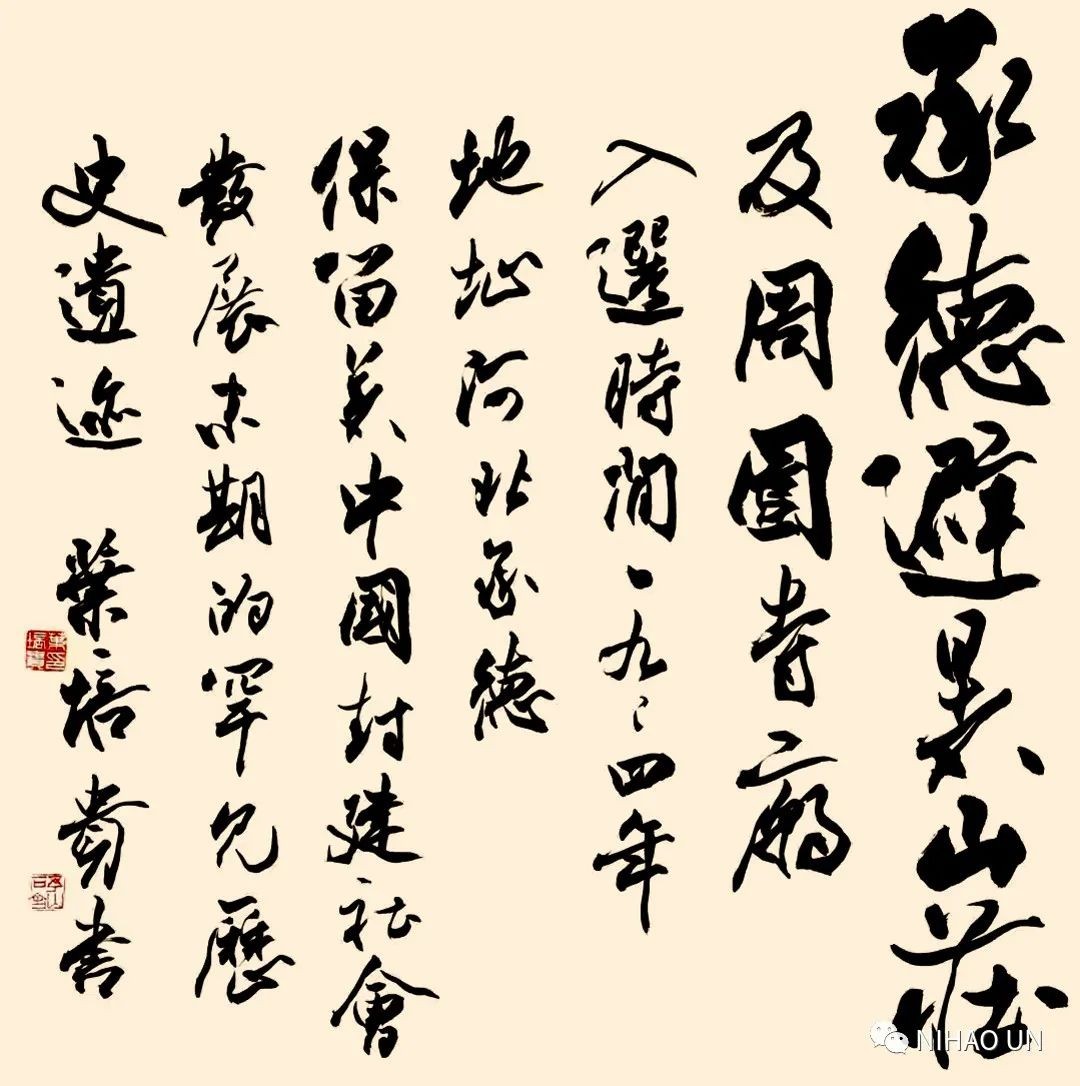 承德避暑山莊
及周圍寺廟
入選時間一九〻四年
地址河北承德
保留着中國封建社會
發展末期的罕見歷
史遺迹 葉培貴書
NIHAO UN